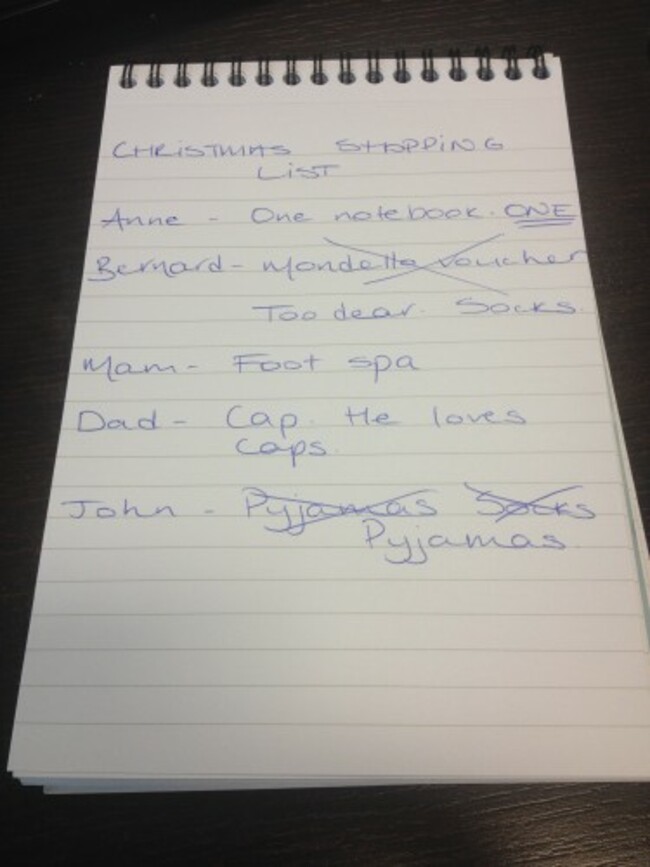 CHRISTMAS SHOPPING
LIST
Anne - One notebook. ONE
Bernard - Mondello voucher
Too dear. Socks.
Mam - Foot spa
Dad - Cap. He loves
caps.
John - Pyjamas Socks
Pyjamas.